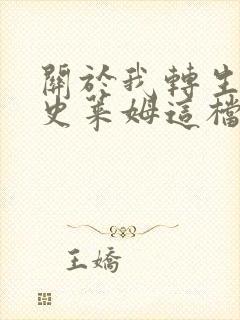 關於我轉生
史萊姆這檔
王嬌